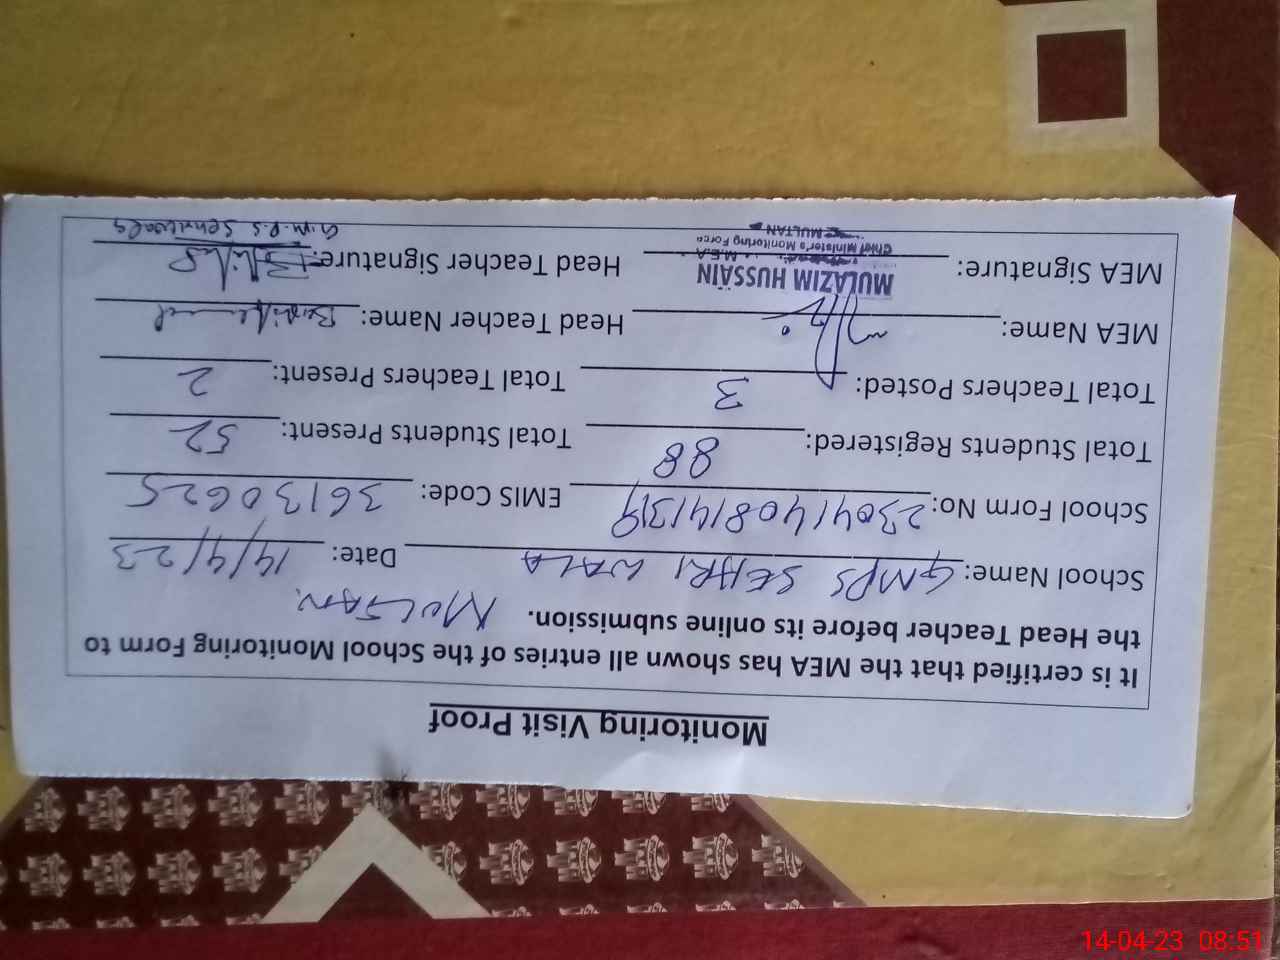 Monitoring Visit Proof
It is certified that the MEA has shown all entries of the School Monitoring Form to
the Head Teacher before its online submission. MULTAN.
School Name: GMPS SEHRI WALA Date: 14/4/23
School Form No: 2304140814139 EMIS Code: 36130625
Total Students Registered: 88 Total Students Present: 52
Total Teachers Posted: 3 Total Teachers Present: 2
MEA Name: Head Teacher Name:
MEA Signature: MULAZIM HUSSAIN Head Teacher Signature:
M.E.A
Chief Minister's Monitoring Force
MULTAN
G.M.P.S
14-04-23 08:51